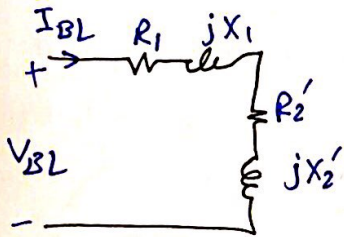 I_BL R₁ jX₁
+
R₂'
V_BL jX₂'
−